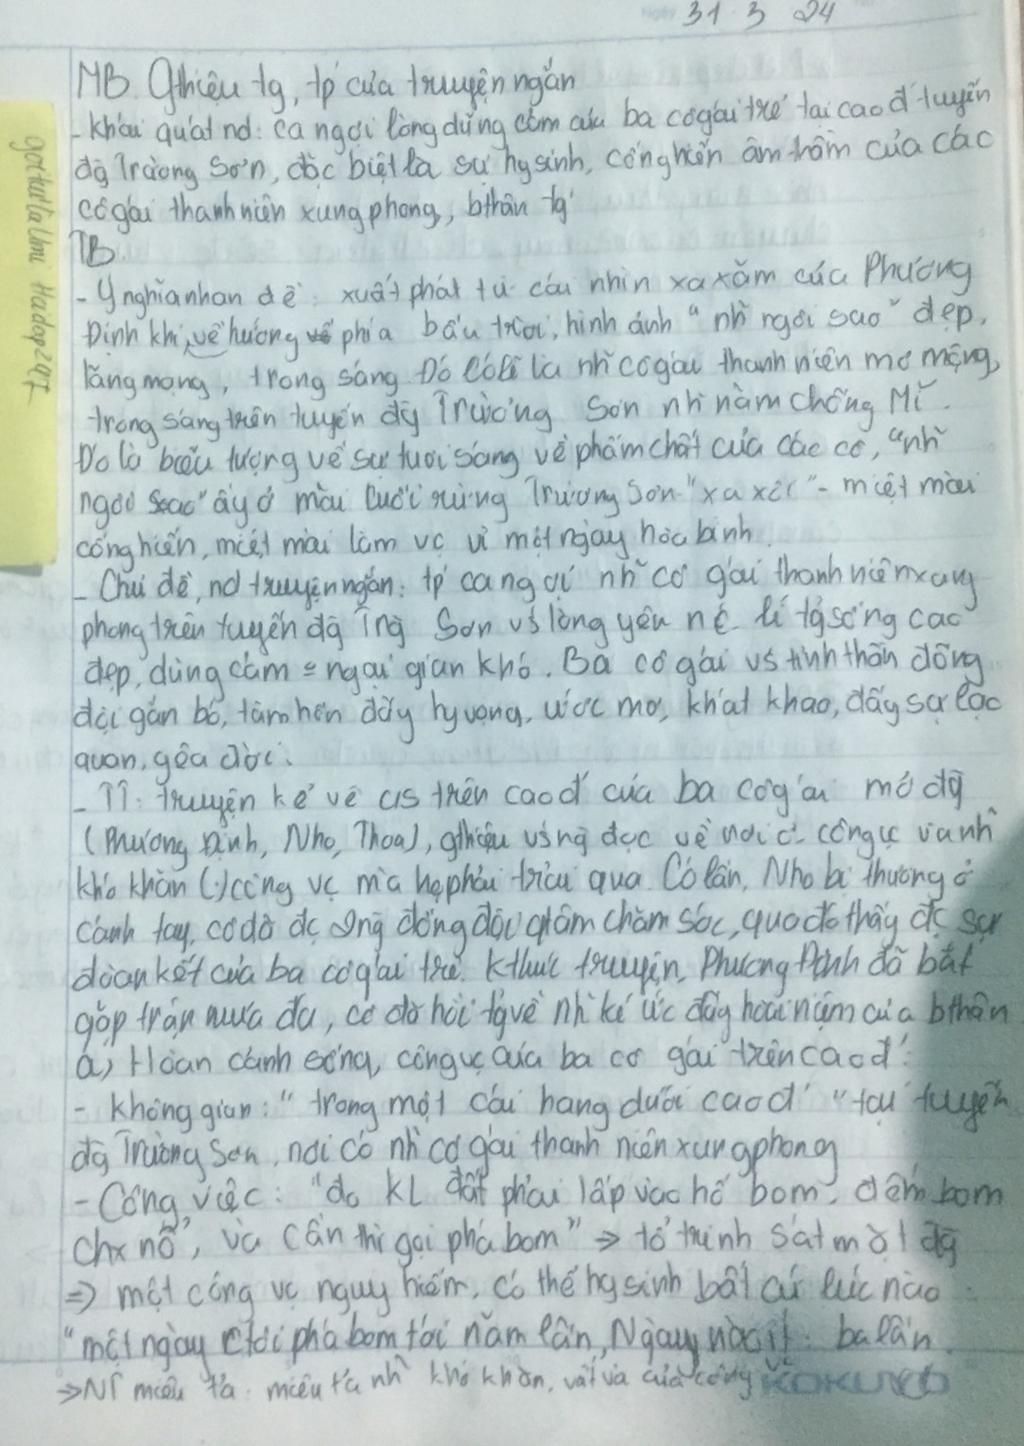 31 3 24
MB. Gthiệu tg, tp của truyện ngắn
- Khái quát nd: ca ngợi lòng dũng cảm của ba cô gái trẻ tại cao đ' tuyến
đg Trường Sơn, đặc biệt là sự hy sinh, cống hiến âm thầm của các
cô gái thanh niên xung phong, bthân tg
TB
- Ý nghĩa nhan đề: xuất phát từ cái nhìn xa xăm của Phương
Định khi về hướng về phía bầu trời, hình ảnh "nh~ ngôi sao" đẹp,
lãng mạng, trong sáng. Đó là nh~ cô gái thanh niên mơ mộng,
trong sáng trên tuyến đg Trường Sơn nh~ năm chống Mĩ.
Đó là biểu tượng về sự tươi sáng về phẩm chất của các cô, "nh~
ngôi sao" ấy ở mãi cuối rừng Trường Sơn "xa xôi" - miệt mài
cống hiến, miệt mài làm vc vì một ngày hòa bình.
- Chủ đề, nd truyện ngắn: tp ca ngợi nh~ cô gái thanh niên xung
phong trên tuyến đg Trg Sơn vs lòng yêu nc, lí tg sống cao
đẹp, dũng cảm ≠ ngại gian khó. Ba cô gái vs tinh thần đồng
đội gắn bó, tâm hồn đầy hy vọng, ước mơ, khát khao, đầy sự lạc
quan, yêu đời.
- TT: truyện kể về c/s trên cao đ' của ba cô gái mở đg
(Phương Định, Nho, Thao), gthiệu vs ng đọc về nơi ở, công vc và nh~
khó khăn (.) công vc mà họ phải trải qua. Có lần, Nho bị thương ở
cánh tay, cô đã đc đồng đội chăm sóc, qua đó thấy đc sự
đoàn kết của ba cô gái trẻ. Kthúc truyện, Phương Định đã bắt
gặp trận mưa đá, cô đã hồi tg về nh~ kí ức đầy hoài niệm của bthân
a) Hoàn cảnh sống, công vc của ba cô gái trên cao đ':
- Không gian: "trong một cái hang dưới cao đ'" tại tuyến
đg Trường Sơn, nơi có nh~ cô gái thanh niên xung phong
- Công việc: "đo KL đất phải lấp vào hố bom, đếm bom
chx nổ, và cần thì gọi phá bom" => tổ trinh sát mặt đg
=> một công vc nguy hiểm, có thể hy sinh bất cứ lúc nào.
"một ngày ctôi phá bom tới năm lần, Ngày nào ít: ba lần
=> NT miêu tả: miêu tả nh~ khó khăn, vất vả của công
KOKUYO